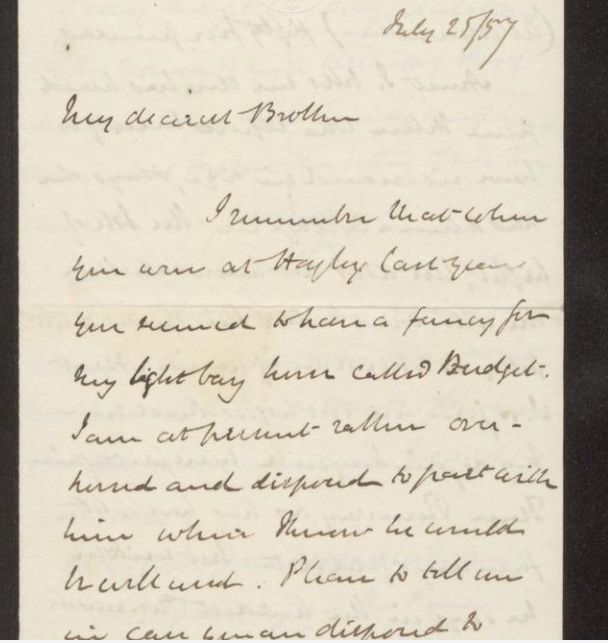 July 25/57
My dearest Brother
I remember that when
you were at Hagley last year
you seemed to have a fancy for
my light bay horse called Budget.
I am at present rather over-
horsed and disposed to part with
him where I knew he would
be well used. Please to tell me
in case you are disposed to